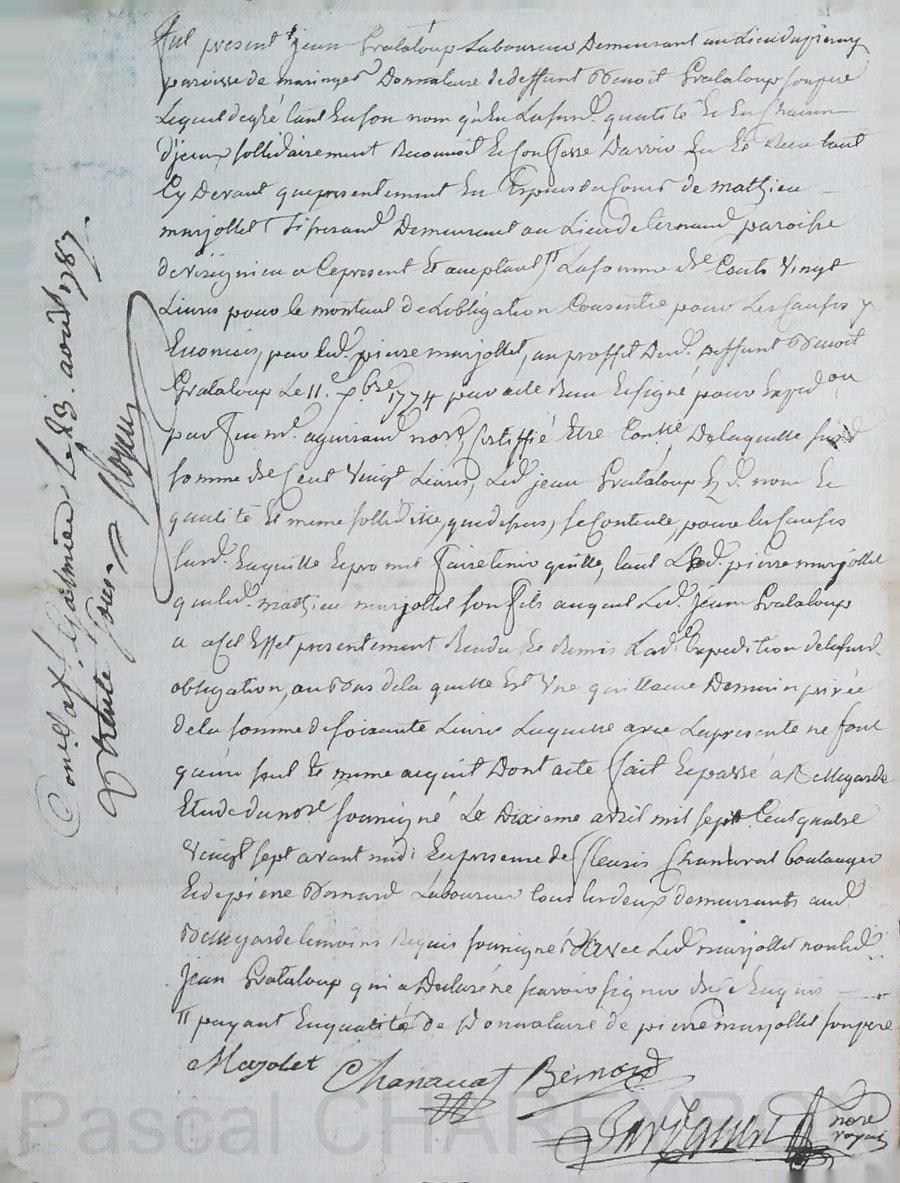 fut present jean Grataloup Laboureur Demeurant au Lieu du pinay
paroisse de maringes Donnataire de deffunt Benoit Grataloup son pere
Lequel de gré tant En son nom qu'En La susd. qualité Et En Chacun
d'jeux sollidairement Reconnoit Et Confesse D'avoir Eu Et Receu tant
Cy Devant que presentement En Especes du Cours de mathieu
murjollet tisserand Demeurant au Lieu de paroisse
de virignieu a Ce present Et acceptant // La somme de Cents Vingt
Livres pour le montant de L'obligation Consentie pour Les Causes y
Enoncées, par Led. pierre murjollet, au proffit Dud. Deffunt Benoit
Grataloup Le 11e. 1774 par acte Receu Et signé pour Expedon
par notre Certiffié Etre Contlé De laquelle susd
somme de Cent Vingt Livres, Led. jean Grataloup Esd. nom Et
qualité Et meme sollidité, que dessus, se Contente, pour les Causes
susd. En quitte Et promet faire tenir quitte, tant Led. pierre murjollet
que led. mathieu murjollet son fils auquel Led. jean Grataloup
a a Cet Effet presentement Rendu Et Remis Lad. Expedition de la susd.
obligation, au Bas de la quelle Est Une quittance De main privée
de la somme de soixante Livres Laquelle avec La presente ne font
qu'un seul Et meme acquit Dont acte fait Et passé a Bellegarde
Etude du nore soussigné Le Dixieme avril mil sept Cent quatre
Vingt sept avant midi En presence de fleuris Chanavat boulanger
Et de pierre Bernard Laboureur tous les deux demeurants aud.
Bellegarde temoins Requis soussignés avec Led. murjollet non led.
jean Grataloup qui a Declaré ne scavoir signer de Ce Enquis
// payant En qualité de Donnataire de pierre murjollet son pere
Mojolet Chanavat Bernord
nore
royal
Conllé a St. Galmier Le 23. aoust 1787.
R trente sous.
Pascal CHAREYRON